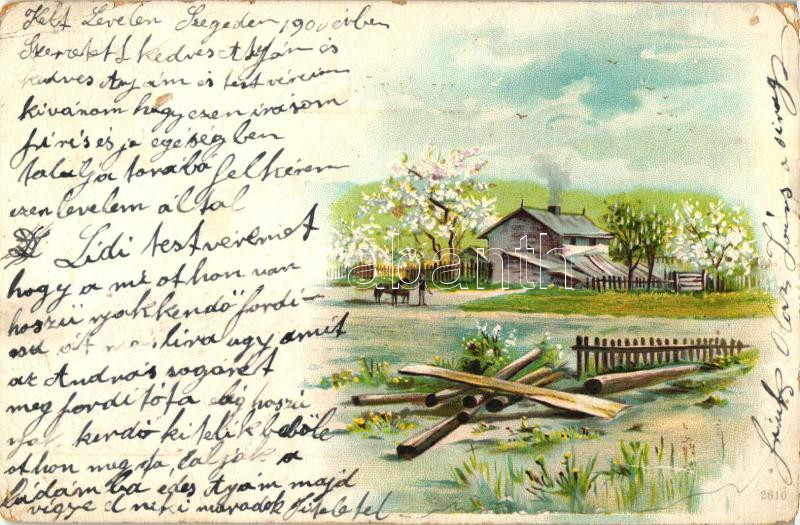 Kelt Levelem Szegeden 1900 évben
Szeretet kedves Atyám és
kedves Anyám és testvéreim
kivánom hogy ezen irásom
friss és jo egéségben
talalja továbá felkérem
ezen levelem által
Lidi testvéremet
hogy a mi othon van
hoszú nyakkendő fordi-
ugy amit
az András sogaret
meg forditóta hoszú
nyak kendő kitelik belőle
othon meg talaljak a
ládámba edes Atyám majd
vigye el neki maradok tisteletel
labanth
2610